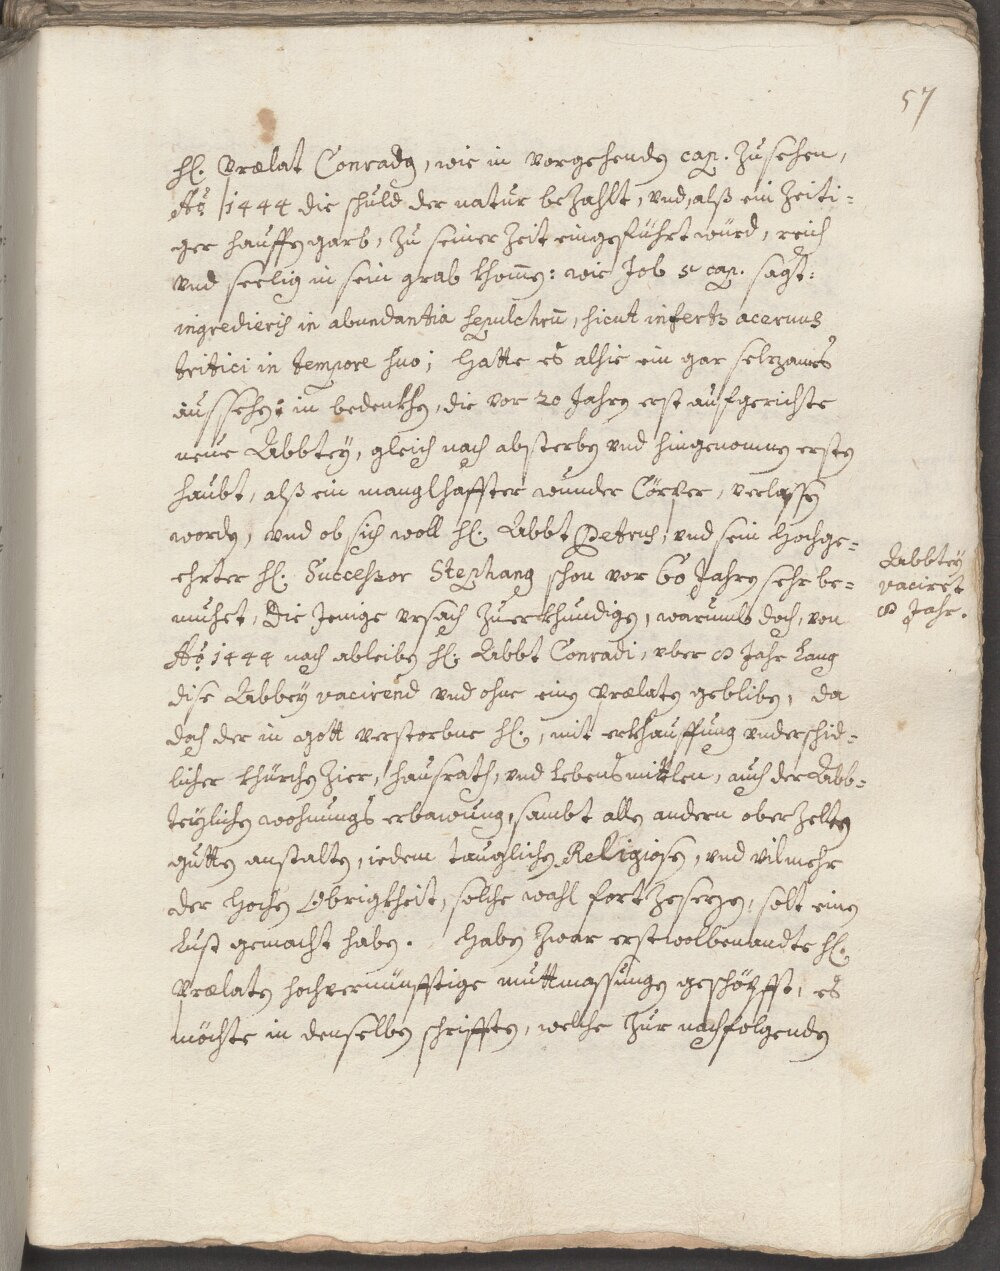 57
H. Prælat Conradg, wie in vorgehendē cap. Zusehen,
Ao 1444 die schuld der natur bezahlt, vnd, alß ein Zeiti-
ger hauffen garb, Zu seiner Zeit eingeführt würd, reich
vnd seelig in sein grab khom̄en: wie Job 5 cap. sagt:
ingredieris in abundantia sepulchrū, sicut infertr acervus
tritici in tempore suo; hatte es alhie ein gar selzames
aussehen in bedenkhen, die vor 20 Jahren erst aufgerichte
neue Abbtey, gleich nach absterben vnd hingenomnen ersten
haubt, alß ein manglhaffter wunder Cörper, verlassen
worden, vnd ob sich woll H. Abbt Petrus, vnd sein hochge-
ehrter H. Successor Stephang schon vor 60 Jahren sehr be-
muhet, die Jenige vrsach Zuerkhundigen, warumb doch, von
Ao 1444 nach ableiben H. Abbt Conradi, vber Jahr lang
dise Abbey vacirend vnd ohne einen Prælaten gebliben, da
doch der in gott verstorbne H., mit erkhauffung vnderschid-
licher khürchen Zier, hausrath, vnd lebensmittlen, auch der Abb-
teylichen wohnungs erbawung, sambt allen andern oberzelten
gutten anstalten, iedem tauglichen Religiosen, vnd vilmehr
der hochen Obrigkheit, solche wahl fort Zesezen, solt einen
lust gemacht haben. Haben Zwar erstwolbenandte H.
Prælaten hochvernünfftige muttmassungen geschöpfft, es
möchte in denselben schrifften, welche Zur nachfolgenden
Abbtey
vaciret
Jahr.